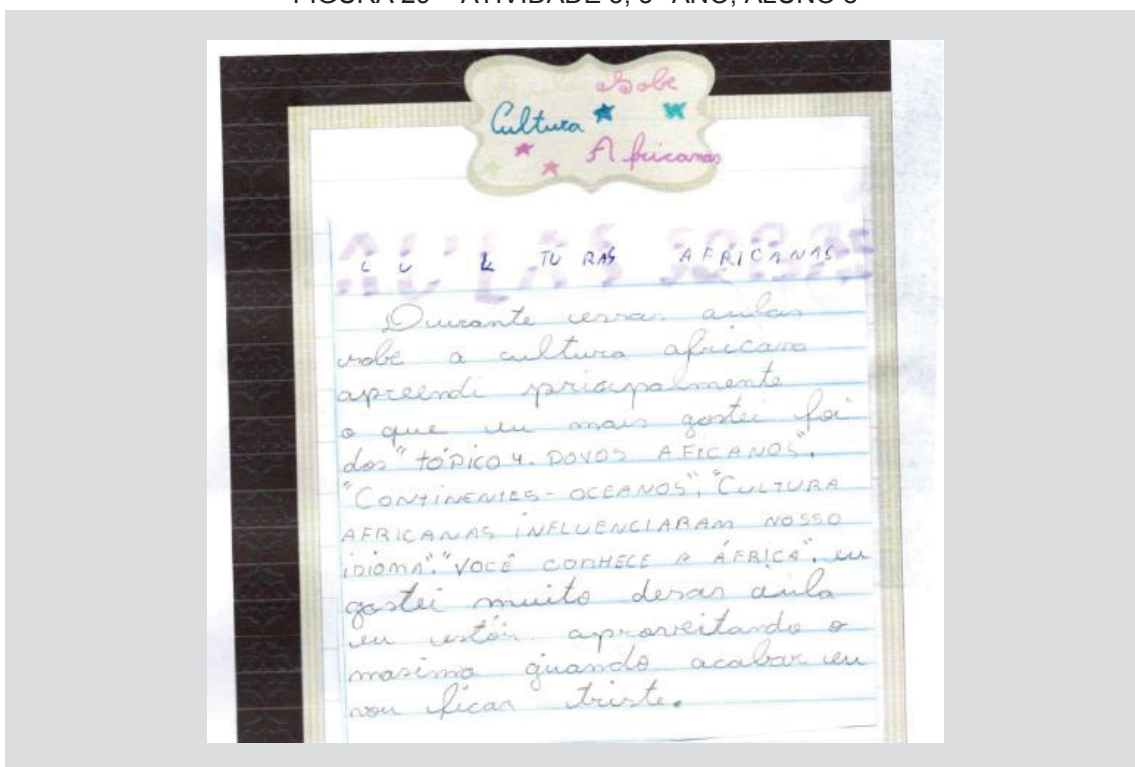 Sobe
Cultura
Africanas
AULAS SOBRE
CULTURAS AFRICANAS
Durante essas aulas
sobe a cultura africana
apreendi priciapalmente
o que eu mais gostei foi
dos "TÓPICO 4. POVOS AFICANOS",
"CONTINENTES - OCEANOS", "CULTURA
AFRICANAS INFLUENCIARAM NOSSO
IDIOMA". "VOCÊ CONHECE A ÁFRICA". eu
gostei muito desas aula
eu estóu aproveitando o
masimo quando acabar eu
vou ficar triste.